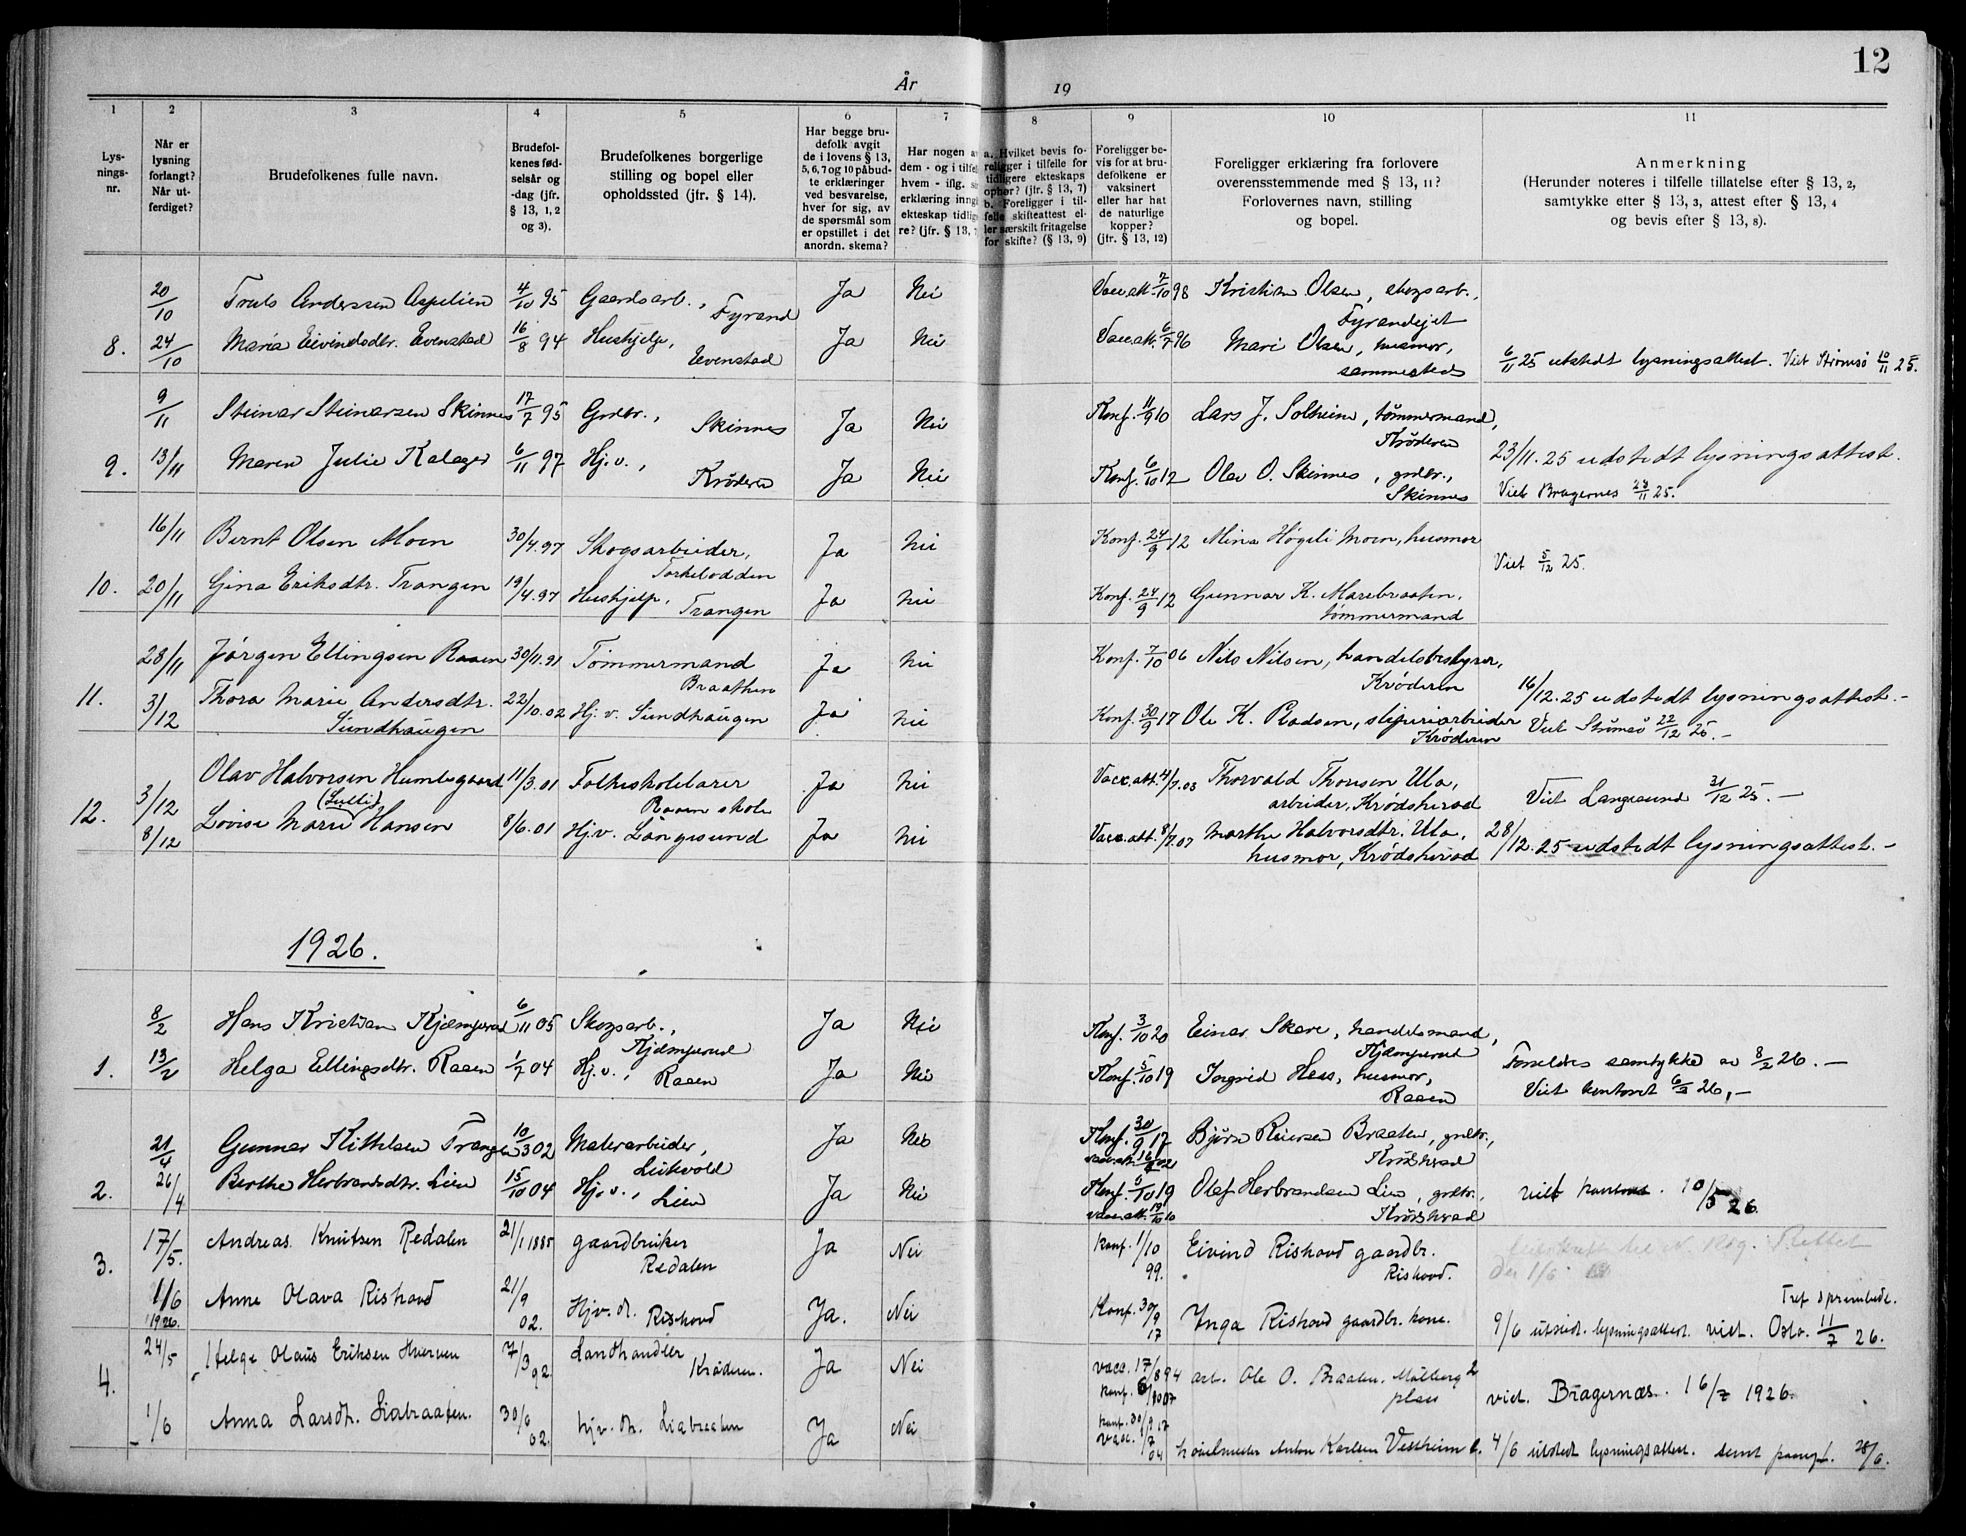 12
År 19
1 2 3 4 5 6 7 8 9 10 11
Lys-
nings-
nr.
Når er
lysning
forlangt?
Når ut-
ferdiget?
Brudefolkenes fulle navn.
Brudefol-
kenes fød-
selsår og
-dag (jfr.
§ 13, 1, 2
og 3).
Brudefolkenes borgerlige
stilling og bopel eller
opholdssted (jfr. § 14).
Har begge bru-
defolk avgit
de i lovens § 13,
5, 6, 7 og 10 påbud-
te erklæringer
ved besvarelse,
hver for sig, av
de spørsmål som
er opstillet i det
anordn. skema?
Har nogen a
dem - og i tilfel
hvem - iflg. s
erklæring inng
ekteskap tidlig
re? (jfr. § 13, 7
a. Hvilket bevis fo-
religger i tilfelle for
tidligere ekteskaps
ophør? (jfr. § 13, 7)
b. Foreligger i til-
felle skifteattest el-
ler særskilt fritagelse
for skifte? (§ 13, 9)
Foreligger be-
vis for at bru-
defolkene er
vaksinert
eller har hat
de naturlige
kopper?
(jfr. § 13, 12)
Foreligger erklæring fra forlovere
overensstemmende med § 13, 11?
Forlovernes navn, stilling
og bopel.
Anmerkning
(Herunder noteres i tilfelle tillatelse efter § 13, 2,
samtykke efter § 13, 3, attest efter § 13, 4
og bevis efter § 13, 8).
20/10 Truls Andersen Aspelien 4/10 95 Gaardsarb., Fyrand Ja Nei Vacc.att. 7/10 98 Kristian Olsen, skogsarb.,
Fyrandejet
8. 24/10 Maria Eivindsdtr. Evenstad 16/8 94 Hushjelp, Evenstad Ja Nei Vacc.att. 6/7 96 Mari Olsen, husmor,
sammesteds
6/11 25 utstedt lysningsattest. Viet Strømsø 10/11 25.
9/11 Steinar Steinarsen Skinnes 17/7 95 Grdbr., Skinnes Ja Nei Konf. 11/9 10 Lars J. Solheim, tømmermand,
Krøderen
9. 13/11 Maren Julie Kalager 6/11 97 Hj.v., Krøderen Ja Nei Konf. 6/10 12 Olav O. Skinnes, grdbr.,
Skinnes
23/11.25 udstedt lysningsattest.
Viet Bragernes 28/11 25.
16/11 Bernt Olsen Moen 30/4.97 Skogsarbeider, Torkelodden Ja Nei Konf. 24/9 12 Mina Høgeli Moen, husmor
Viet 5/12 25.
10. 20/11 Gina Eriksdtr. Trangen 19/4.97 Hushjelp, Trangen Ja Nei Konf. 24/9 12 Gunnar K. Marebraaten,
tømmermand
28/11 Jørgen Ellingsen Raaen 30/11.91 Tømmermand Braathen Ja Nei Konf. 7/10 06 Nils Nilsen, handelsbestyrer,
Krøderen
11. 3/12 Thora Marie Andersdtr.
Sundhaugen 22/10.02 Hj.v. Sundhaugen Ja Nei Konf. 30/9 17 Ole K. Pladsen, sliperiarbeider
Krøderen
16/12.25 udstedt lysningsattest.-
Viet Strømsø 22/12 25.-
3/12 Olav Halvorsen Humlegaard 11/3.01 Folkeskolelærer Raaen skole Ja Nei Vacc.att. 4/7.03 Thorvald Thorsen Ula,
arbeider, Krødsherad
Viet Langesund 31/12 25.-
12. 8/12 Lovise Marie (Lulli) Hansen 8/6.01 Hj.v. Langesund Ja Nei Vacc.att. 8/7.07 Marthe Halvorsdtr. Ula,
husmor, Krødsherad
28/12.25 udstedt lysningsattest.-
1926.
8/2 Hans Kristian Kjæmperud 6/11 05 Skogsarb., Kjæmperud Ja Nei Konf. 3/10 20 Einar Skare, handelsmand,
Kjæmperud
1. 13/2 Helga Ellingsdtr. Raaen 1/7 04 Hj.v., Raaen Ja Nei Konf. 5/10 19 Ingrid Hess, husmor,
Raaen
Forældres samtykke av 8/2 26.-
Viet kontoret 6/3 26,-
21/4 Gunnar Kittelsen Trangen 10/3 02 Møllerarbeider, Ja Nei Konf. 30/9 17 Bjørn Reiersen Braaten, grdbr.,
Krødsherad
2. 26/4 Berthe Herbrandsdtr. Lien 15/10 04 Hj.v., Lien Ja Nei Konf. 5/10 19 Olaf Herbrandsen Lien, grdbr.,
Krødsherad
viet kontoret. 10/5 26.
3. 17/5. Andreas Knutsen Redalen 21/1 1885 gaardbruker Redalen Ja Nei Konf. 1/10 99. Eivind Rishovd gaardbr.
Rishovd.
1/6 1926. Anne Olava Rishovd 21/9 02. Hjv. dt. Rishovd Ja. Nei Konf. 30/9 17 Inga Rishovd gaardbr. kone.
9/6 utstedt. lysningsattest. viet. Oslo. 11/7 26.
4. 24/5 Helge Olaus Eriksen Hverven 7/3 92. Landhandler Krøderen. Ja Nei vacc. 17/8 94
konf. 6/10 07 arb. Ole O. Braaten. Mølberg 2
plass
viet. Bragernæs. 16/7 1926.
1/6 Anna Larsdt. Liabraaten. 30/6 02. hjv. dt. Liabraaten Ja Nei konf. 30/9 17
vacc. 1/7 04 Anton Karlsen Vestheim 4/6 utstedt lysningsattest. 28/6.